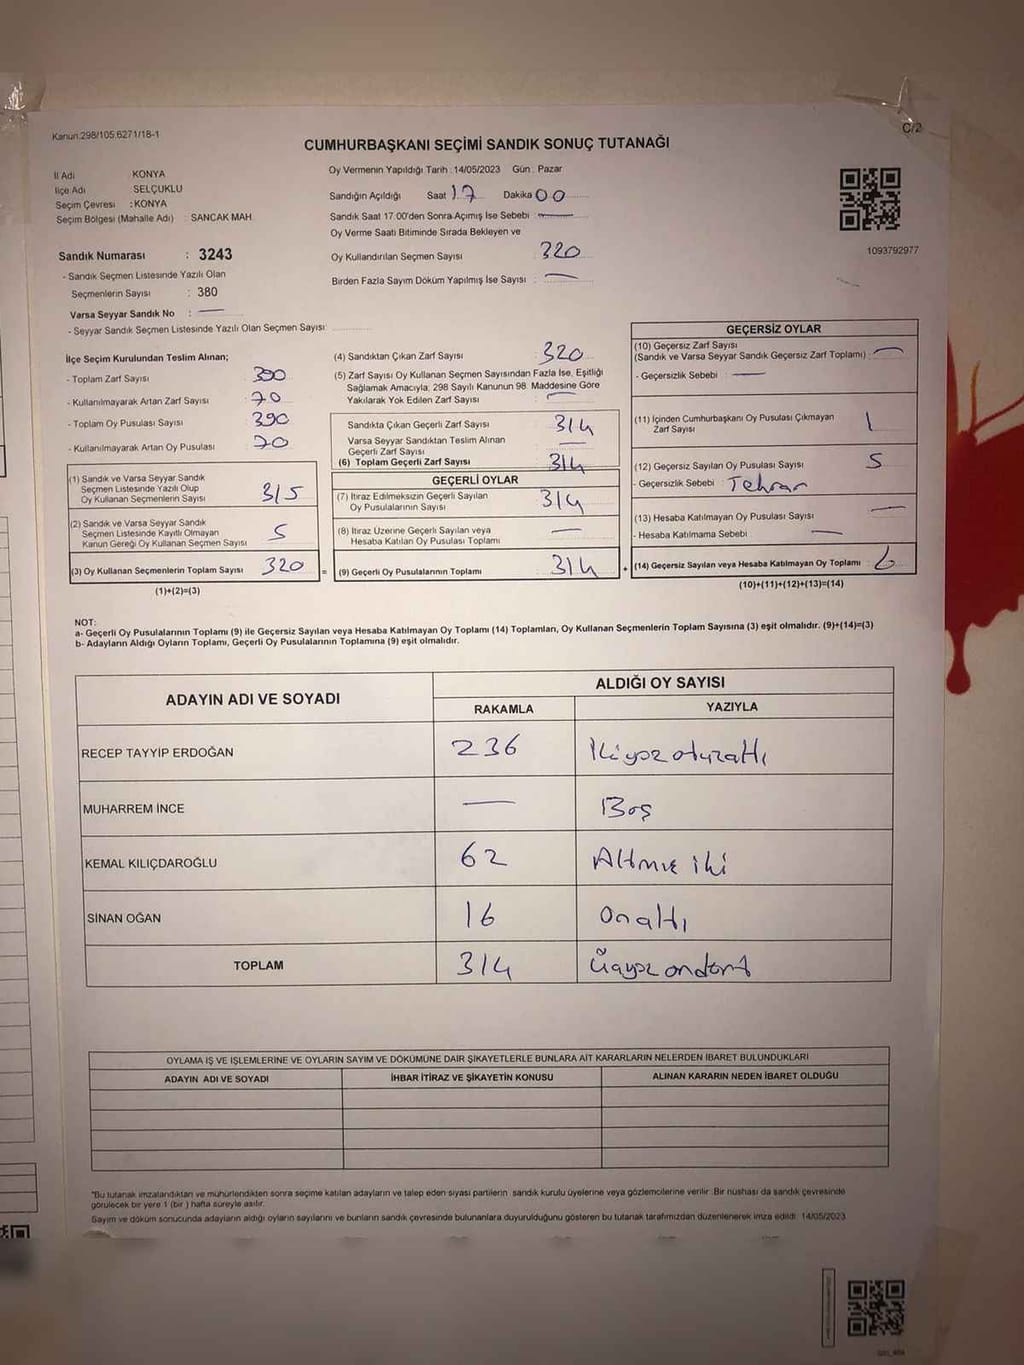 Kanun:298/105:6271/18-1
C/2
CUMHURBAŞKANI SEÇİMİ SANDIK SONUÇ TUTANAĞI
İl Adı : KONYA
İlçe Adı : SELÇUKLU
Seçim Çevresi : KONYA
Seçim Bölgesi (Mahalle Adı) : SANCAK MAH.
Sandık Numarası : 3243
- Sandık Seçmen Listesinde Yazılı Olan
Seçmenlerin Sayısı : 380
Varsa Seyyar Sandık No : —
- Seyyar Sandık Seçmen Listesinde Yazılı Olan Seçmen Sayısı:
Oy Vermenin Yapıldığı Tarih : 14/05/2023 Gün : Pazar
Sandığın Açıldığı Saat 17 Dakika 00
Sandık Saat 17.00'den Sonra Açımış İse Sebebi : —
Oy Verme Saati Bitiminde Sırada Bekleyen ve
Oy Kullandırılan Seçmen Sayısı : 320
Birden Fazla Sayım Döküm Yapılmış İse Sayısı : —
1093792977
İlçe Seçim Kurulundan Teslim Alınan;
- Toplam Zarf Sayısı : 390
- Kullanılmayarak Artan Zarf Sayısı : 70
- Toplam Oy Pusulası Sayısı : 390
- Kullanılmayarak Artan Oy Pusulası : 70
(1) Sandık ve Varsa Seyyar Sandık
Seçmen Listesinde Yazılı Olup
Oy Kullanan Seçmenlerin Sayısı 315
(2) Sandık ve Varsa Seyyar Sandık
Seçmen Listesinde Kayıtlı Olmayan
Kanun Gereği Oy Kullanan Seçmen Sayısı 5
(3) Oy Kullanan Seçmenlerin Toplam Sayısı 320
(1)+(2)=(3)
(4) Sandıktan Çıkan Zarf Sayısı : 320
(5) Zarf Sayısı Oy Kullanan Seçmen Sayısından Fazla İse, Eşitliği
Sağlamak Amacıyla; 298 Sayılı Kanunun 98. Maddesine Göre
Yakılarak Yok Edilen Zarf Sayısı : —
Sandıkta Çıkan Geçerli Zarf Sayısı 314
Varsa Seyyar Sandıktan Teslim Alınan
Geçerli Zarf Sayısı —
(6) Toplam Geçerli Zarf Sayısı 314
GEÇERLİ OYLAR
(7) İtiraz Edilmeksizin Geçerli Sayılan
Oy Pusulalarının Sayısı 314
(8) İtiraz Üzerine Geçerli Sayılan veya
Hesaba Katılan Oy Pusulası Toplamı —
= (9) Geçerli Oy Pusulalarının Toplamı 314 +
GEÇERSİZ OYLAR
(10) Geçersiz Zarf Sayısı
(Sandık ve Varsa Seyyar Sandık Geçersiz Zarf Toplamı) —
- Geçersizlik Sebebi : —
(11) İçinden Cumhurbaşkanı Oy Pusulası Çıkmayan
Zarf Sayısı 1
(12) Geçersiz Sayılan Oy Pusulası Sayısı 5
- Geçersizlik Sebebi : Tekrar
(13) Hesaba Katılmayan Oy Pusulası Sayısı —
- Hesaba Katılmama Sebebi : —
(14) Geçersiz Sayılan veya Hesaba Katılmayan Oy Toplamı : 6
(10)+(11)+(12)+(13)=(14)
NOT:
a- Geçerli Oy Pusulalarının Toplamı (9) ile Geçersiz Sayılan veya Hesaba Katılmayan Oy Toplamı (14) Toplamları, Oy Kullanan Seçmenlerin Toplam Sayısına (3) eşit olmalıdır. (9)+(14)=(3)
b- Adayların Aldığı Oyların Toplamı, Geçerli Oy Pusulalarının Toplamına (9) eşit olmalıdır.
ADAYIN ADI VE SOYADI
ALDIĞI OY SAYISI
RAKAMLA YAZIYLA
RECEP TAYYİP ERDOĞAN 236 İkiyüzotuzaltı
MUHARREM İNCE — Boş
KEMAL KILIÇDAROĞLU 62 Altmış iki
SİNAN OĞAN 16 Onaltı
TOPLAM 314 Üçyüz ondört
OYLAMA İŞ VE İŞLEMLERİNE VE OYLARIN SAYIM VE DÖKÜMÜNE DAİR ŞİKAYETLERLE BUNLARA AİT KARARLARIN NELERDEN İBARET BULUNDUKLARI
ADAYIN ADI VE SOYADI İHBAR İTİRAZ VE ŞİKAYETİN KONUSU ALINAN KARARIN NEDEN İBARET OLDUĞU
*Bu tutanak imzalandıktan ve mühürlendikten sonra seçime katılan adayların ve talep eden siyasi partilerin sandık kurulu üyelerine veya gözlemcilerine verilir. Bir nüshası da sandık çevresinde
görülecek bir yere 1 (bir) hafta süreyle asılır.
Sayım ve döküm sonucunda adayların aldığı oyların sayılarını ve bunların sandık çevresinde bulunanlara duyurulduğunu gösteren bu tutanak tarafımızdan düzenlenerek imza edildi. 14/05/2023